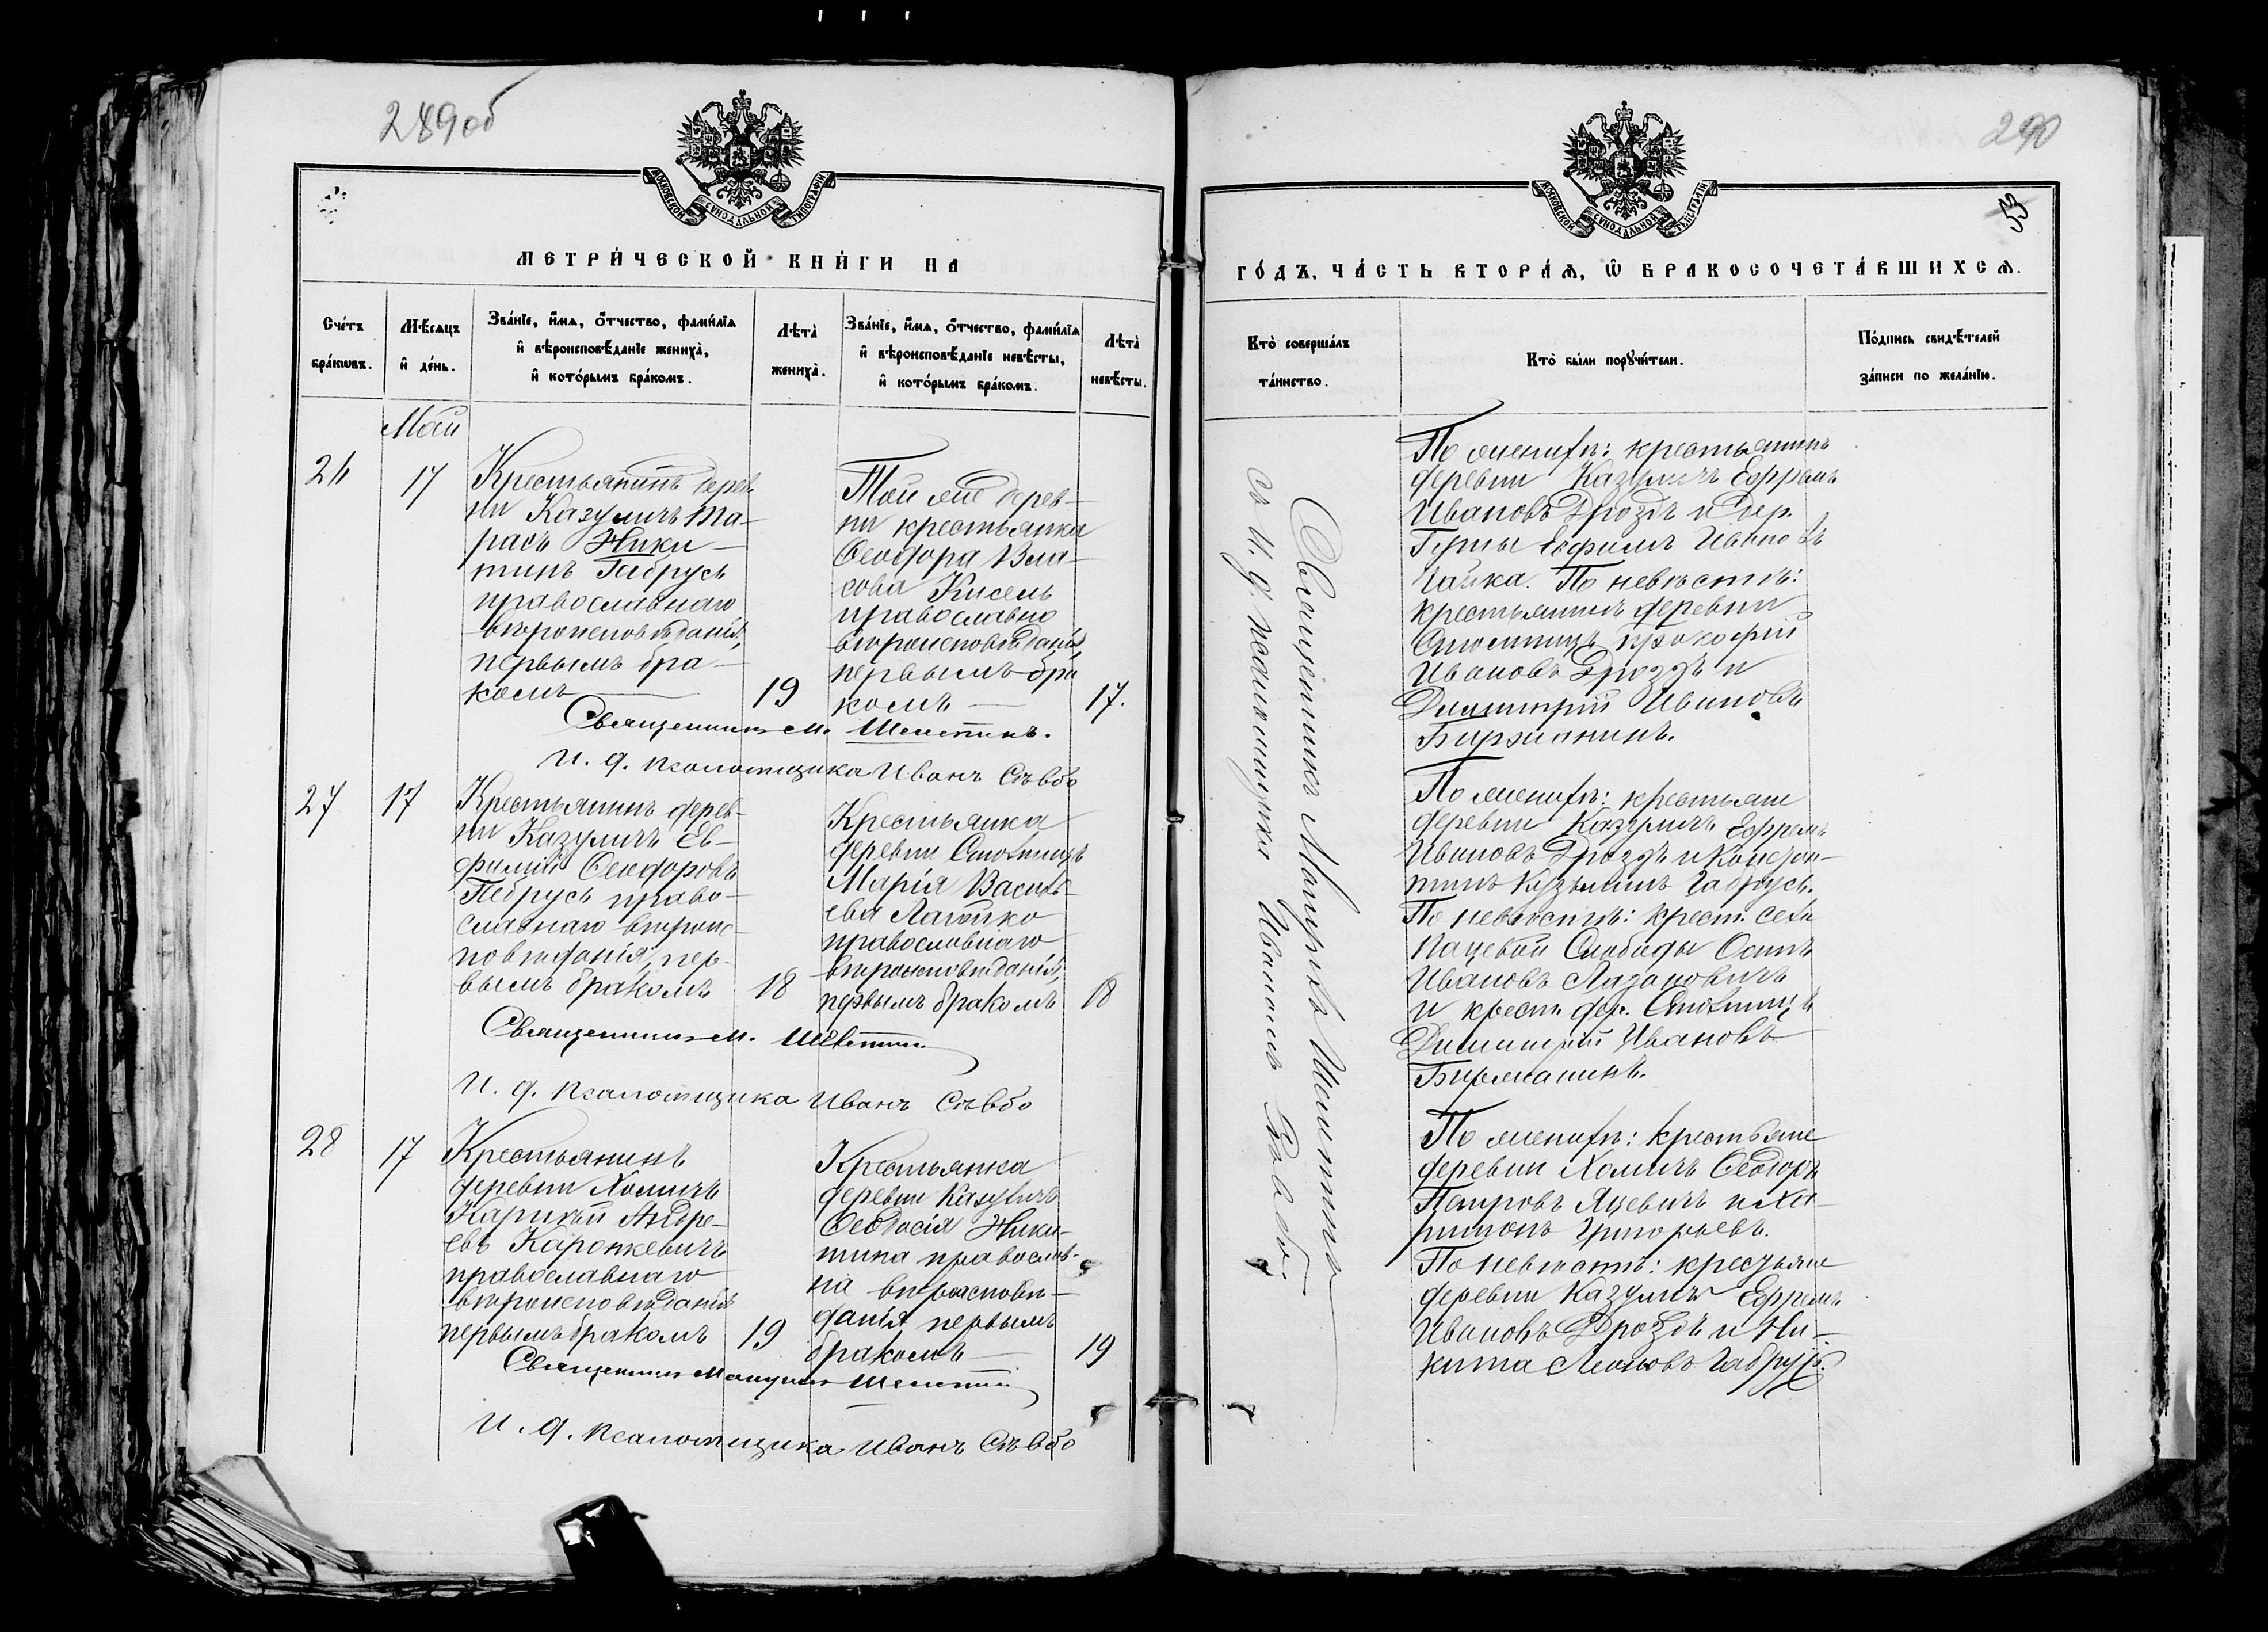 289об
МОСКОВСКОЙ СѴНОДАЛЬНОЙ ТИПОГРАФІИ
МЕТРИ́ЧЕСКОЙ КНИ́ГИ НА
Сче́тъ бра́кѡвъ.
Мѣ́сяцъ и҆ де́нь.
Зва́нїе, и҆́мѧ, ѻ҆́тчество, фами́лїѧ
и҆ вѣроисповѣ́данїе жениха̀,
и҆ кото́рымъ бра́комъ.
Лѣта̀ жениха̀.
Зва́нїе, и҆́мѧ, ѻ҆́тчество, фами́лїѧ
и҆ вѣроисповѣ́данїе невѣ́сты,
и҆ кото́рымъ бра́комъ.
Лѣта̀ невѣ́сты.
Май
26
17
Крестьянинъ дерев-
ни Казуличъ Та-
расъ Ники-
тинъ Габрусь
православнаго
вѣроисповѣданія,
первымъ бра-
комъ
19
Той же дерев-
ни крестьянка
Ѳеодора Вла-
сова Кисель
православно
вѣроисповѣданія,
первымъ бра
комъ
17.
Священникъ М. Шелепинъ.
И. д. псаломщика Иванъ Съвбо
27
17
Крестьянинъ дерев-
ни Казуличъ Ев-
фимій Ѳеодоровъ
Габрусь право-
славнаго вѣроис-
повѣданія, пер-
вымъ бракомъ
18
Крестьянка
деревни
Марія Василь-
ева Лагойко
православнаго
вѣроисповѣданія,
первымъ бракомъ
18
Священникъ М. Шелепин
И. д. псаломщика Иванъ Съвбо
28
17
Крестьянинъ
деревни Хомичъ
Карпъ Андре-
евъ Каронкевичъ
православнаго
вѣроисповѣданія
первымъ бракомъ
19
Крестьянка
деревни Казуличъ
Ѳеодосія Ники-
тина православ-
на вѣроисповѣ-
данія первымъ
бракомъ
19
Священникъ Шелепин
И. д. псаломщика Иванъ Съвбо
290
53
МОСКОВСКОЙ СѴНОДАЛЬНОЙ ТИПОГРАФІИ
ГО́ДЪ, ЧА́СТЬ ВТОРА́Ѧ, Ѡ҆ БРАКОСОЧЕТА́ВШИХСѦ.
Кто̀ соверша́лъ та́инство.
Кто̀ бы́ли порꙋчи́тели.
По́дпись свидѣ́телей
за́писи по жела́нїю.
Священникъ
съ и. д. псаломщика Иваномъ
По женихѣ: крестьянинъ
деревни Казуличъ Ефремъ
Ивановъ Дроздъ и дер.
Евфимъ Ивановъ
Чайка. По невѣстѣ:
крестьянинъ деревни
Прокофій
Ивановъ Дроздъ и
Димитрій Ивановъ
Биржанинъ.
По женихѣ: крестьяне
деревни Казуличъ Ефремъ
Ивановъ Дроздъ и Констан-
тинъ Кузьминъ Габрусь.
По невѣстѣ: крест. села
Панцевой Слободы Осипъ
Ивановъ Лазановичъ
и крест. дер.
Димитрій Ивановъ
Биржанинъ.
По женихѣ: крестьяне
деревни Хомичъ Ѳедоръ
Петровъ Яцевичъ и Ха-
ритонъ Григорьевъ.
По невѣстѣ: крестьяне
деревни Казуличъ Ефремъ
Ивановъ Дроздъ и Ни-
кита Леоновъ Габрусь.